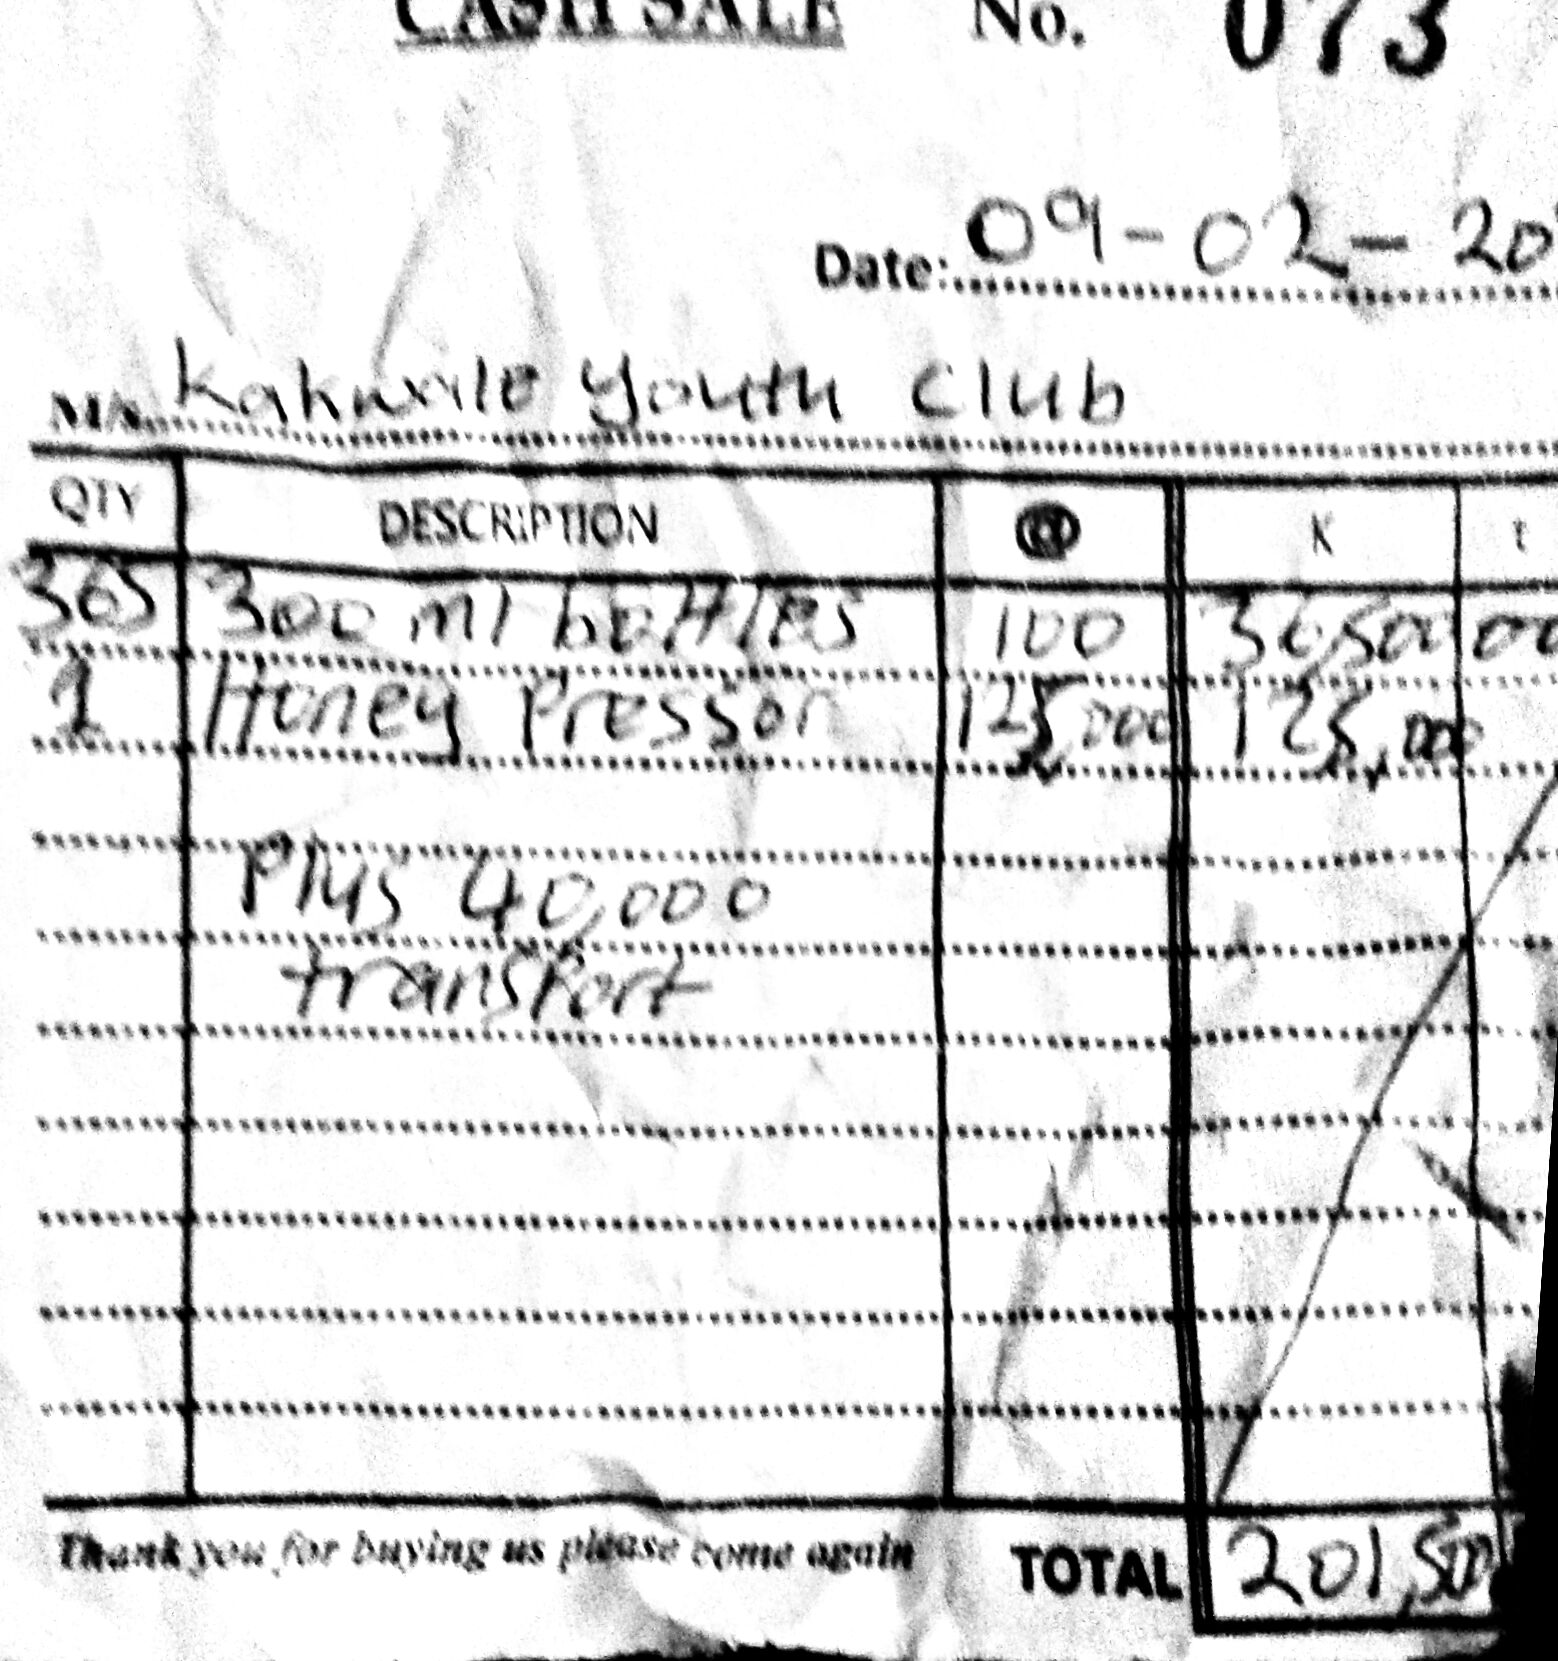 CASH SALE No. 073
Date: 09-02-20
M/s. Youth Club
QTY DESCRIPTION @ K t
365 300 ml bottles 100 36,500 00
1 Honey Pressor 125,000 125,000
Plus 40,000
transport
Thank you for buying us please come again TOTAL 201,500